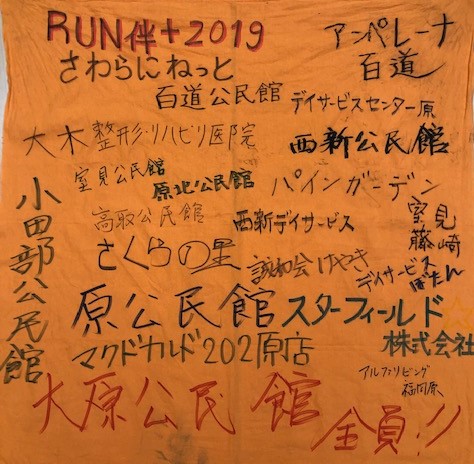 RUN伴+2019
アンペレーナ
百道
さわらにねっと
百道公民館
デイサービスセンター原
大木整形・リハビリ医院
西新公民館
室見公民館
原北公民館
パインガーデン
高取公民館
西新デイサービス
室見
藤崎
小田部公民館
さくらの星
誠和会けやき
デイサービス
ぼたん
原公民館
スターフィールド
株式会社
マクドナルド202原店
アルファリビング
福岡原
大原公民館
全員!!